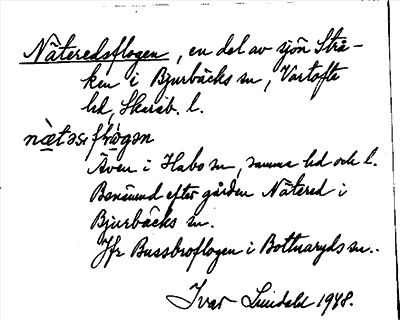 Näteredsflogen, en del av sjön Strå-
ken i Bjurbäcks sn, Vartofta
hd, Skarab. l.
Även i Habo sn, samma hd och l.
Benämnd efter gården Nätered i
Bjurbäcks sn.
Jfr Bussbroflogen i Bottnaryds sn.
Ivar Lundahl 1948.